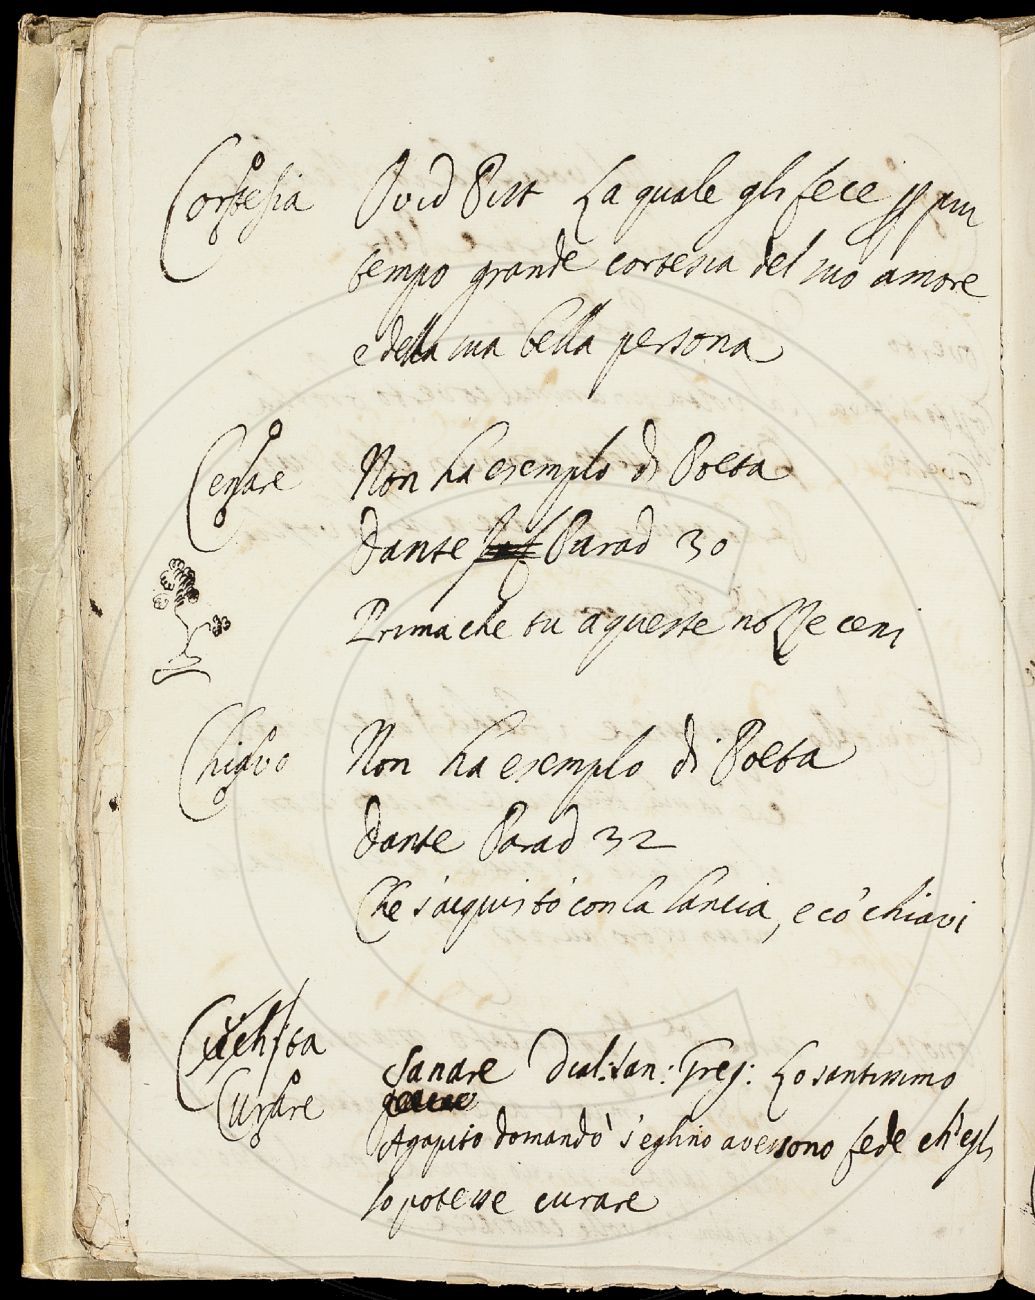 Cortesia Ovid Pist La quale gli fece p piu
tempo grande cortesia del suo amore
e della sua bella persona
Cenare Non ha esemplo di Poeta
Dante Parad 30
Prima che tu a queste nozze ceni
Chiavo Non ha esemplo di Poeta
Dante Parad 32
Che s'acquistò con la lancia, e co' chiavi
Curare Sanare Dial: San: Greg: Lo santissimo
Agapito domandò s'eglino avessono fede ch'egli
lo potesse curare